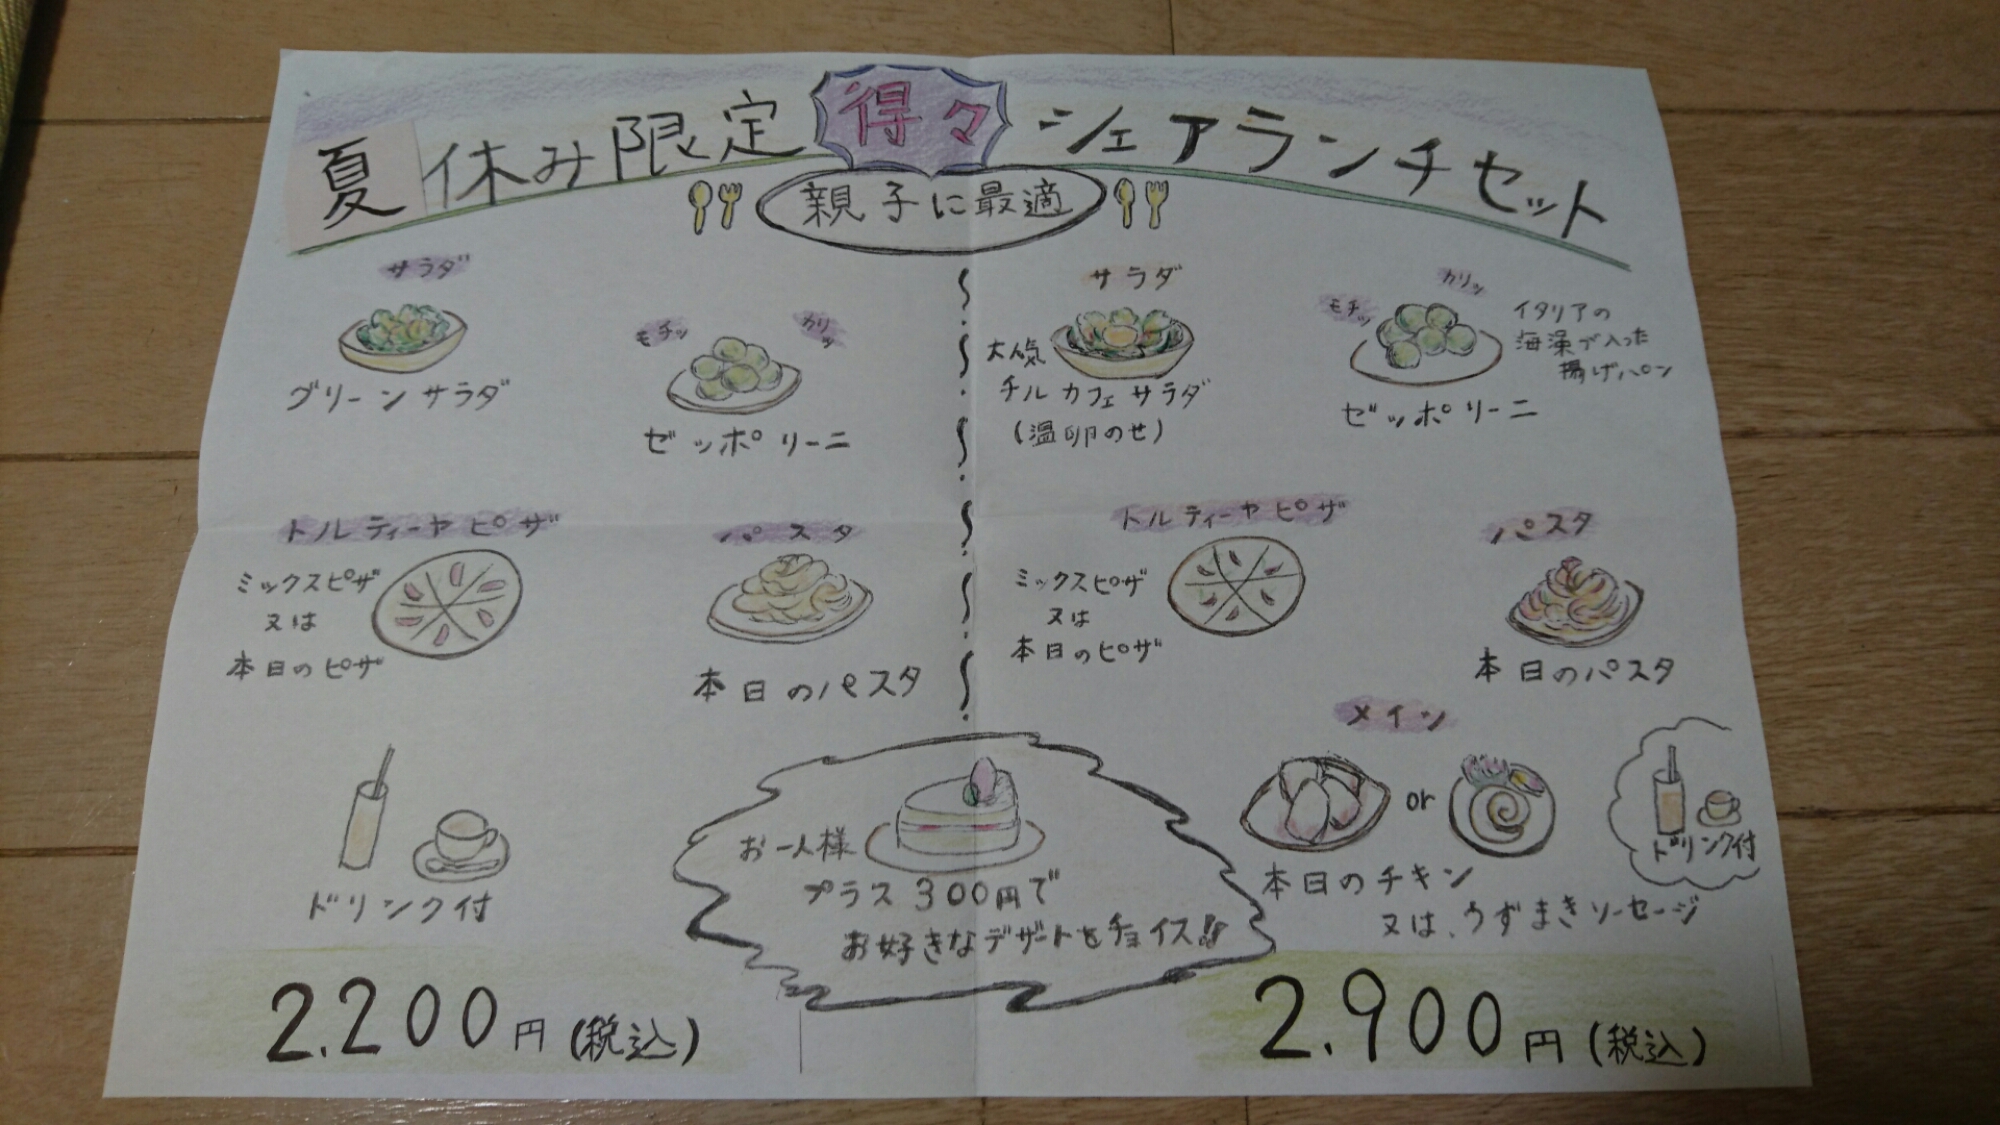 夏休み限定 得々 シェアランチセット
親子に最適
サラダ
グリーンサラダ
モチッ
カリッ
ゼッポリーニ
トルティーヤピザ
ミックスピザ
又は
本日のピザ
パスタ
本日のパスタ
ドリンク付
2.200円(税込)
サラダ
大人気
チルカフェサラダ
(温卵のせ)
モチッ
カリッ
イタリアの
海藻が入った
揚げパン
ゼッポリーニ
トルティーヤピザ
ミックスピザ
又は
本日のピザ
パスタ
本日のパスタ
メイン
or
本日のチキン
又は、うずまきソーセージ
ドリンク付
2.900円(税込)
お一人様
プラス300円で
お好きなデザートをチョイス!!